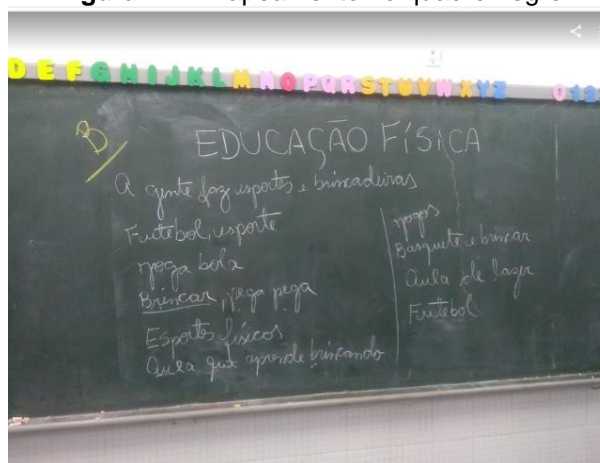 D E F G H I J K L M N O P Q R S T U V W X Y Z 0 1 2
B
EDUCAÇÃO FÍSICA
A gente faz esportes e brincadeiras
Futebol, esporte
joga bola
Brincar, pega pega
Esportes físicos
Aula que aprende brincando
jogos
Basquete e brincar
Aula de lazer
Futebol